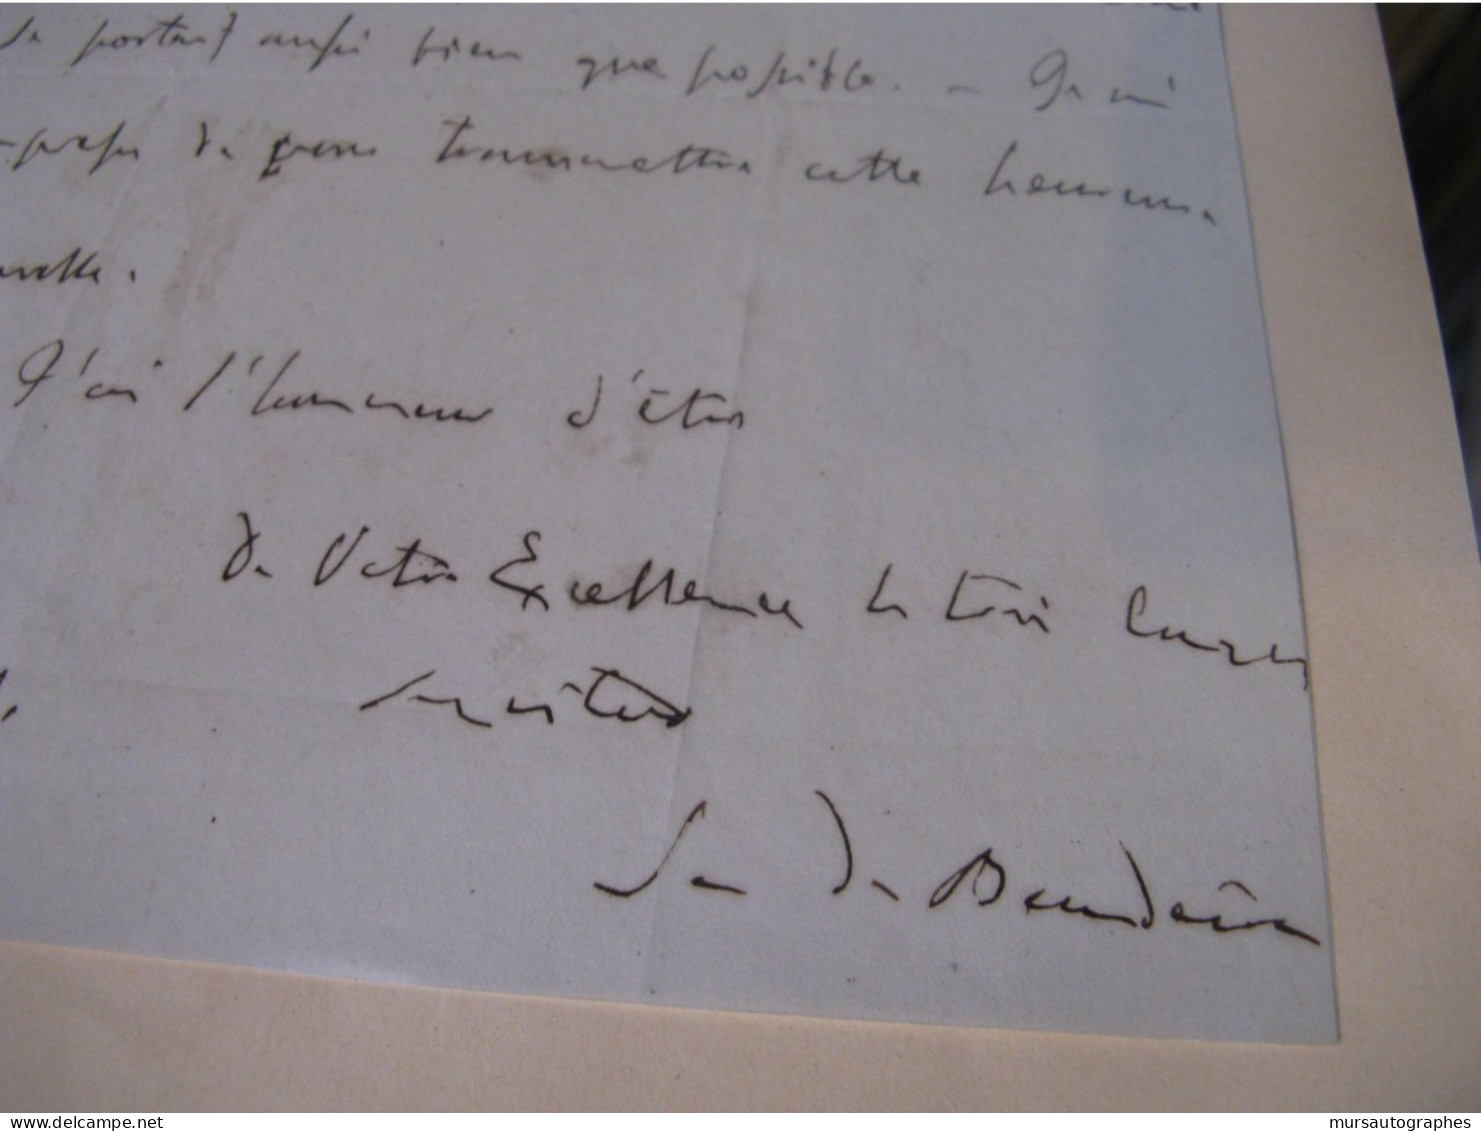 se portant aussi bien que possible. - Je m'
-presse de vous transmettre cette heureuse
nouvelle.
J'ai l'honneur d'être
de Votre Excellence le très humble
serviteur
de Baudein
delcampe.net
mursautographes